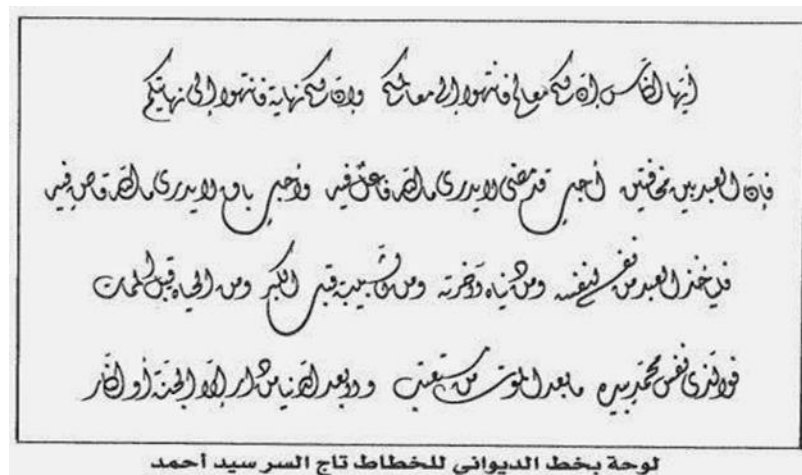 أيها الناس إن لكم معالم فانتهوا إلى معالمكم وإن لكم نهاية فانتهوا إلى نهايتكم
فإن العبد بين مخافتين أجل قد مضى لا يدري ما الله فاعل فيه وأجل باق لا يدري ما الله قاض فيه
فليأخذ العبد من نفسه لنفسه ومن دنياه لآخرته ومن الشبيبة قبل الكبر ومن الحياة قبل الممات
فوالذي نفس محمد بيده ما بعد الموت من مستعتب ولا بعد الدنيا من دار إلا الجنة أو النار
لوحة بخط الديواني للخطاط تاج السر سيد أحمد